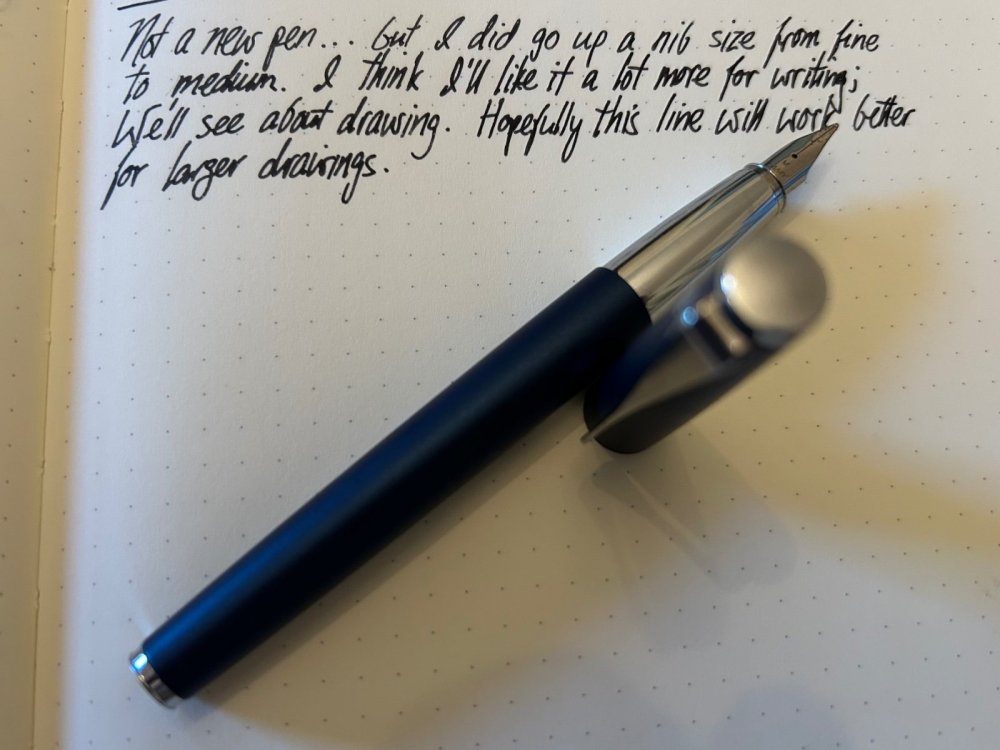 Not a new pen... but I did go up a nib size from fine
to medium. I think I'll like it a lot more for writing;
We'll see about drawing. Hopefully this line will work better
for larger drawings.